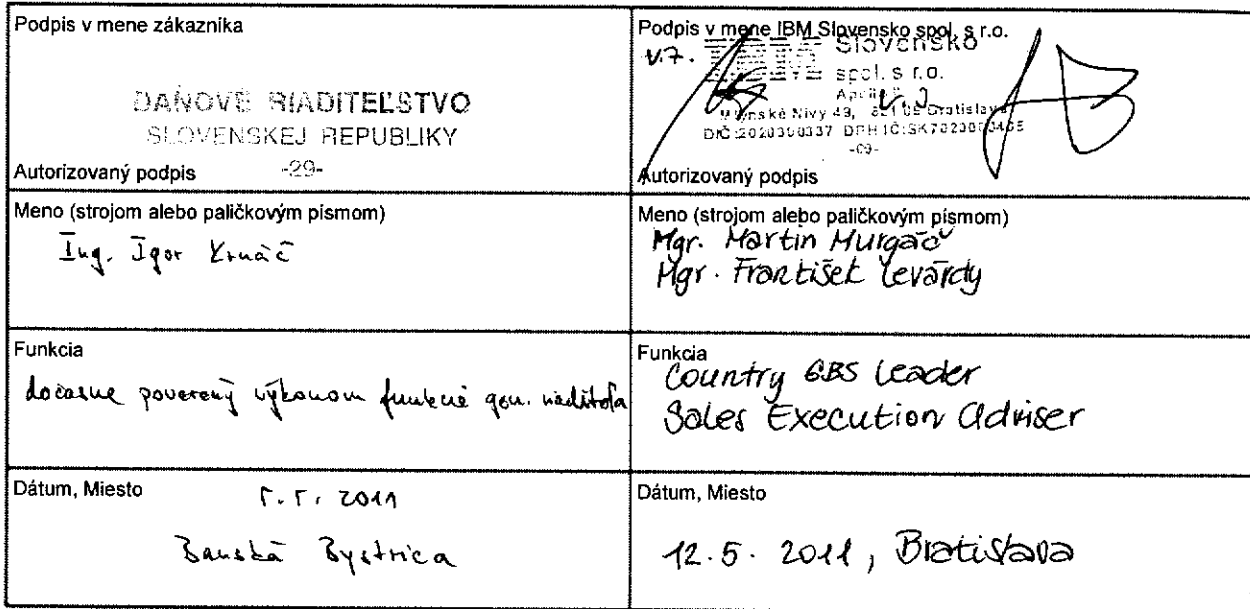 Podpis v mene zákazníka
DAŇOVÉ RIADITEĽSTVO
SLOVENSKEJ REPUBLIKY
-29-
Autorizovaný podpis
Podpis v mene IBM Slovensko spol. s r.o.
v.z.
IBM Slovensko
spol. s r.o.
Mlynské Nivy 49, Bratislava
-09-
Autorizovaný podpis
Meno (strojom alebo paličkovým písmom)
Ing. Igor Krnáč
Meno (strojom alebo paličkovým písmom)
Mgr. Martin Murgáč
Mgr. František Levárdy
Funkcia
dočasne poverený výkonom funkcie gen. riaditeľa
Funkcia
Country GBS Leader
Sales Execution Adviser
Dátum, Miesto
5.5. 2011
Banská Bystrica
Dátum, Miesto
12.5. 2011, Bratislava